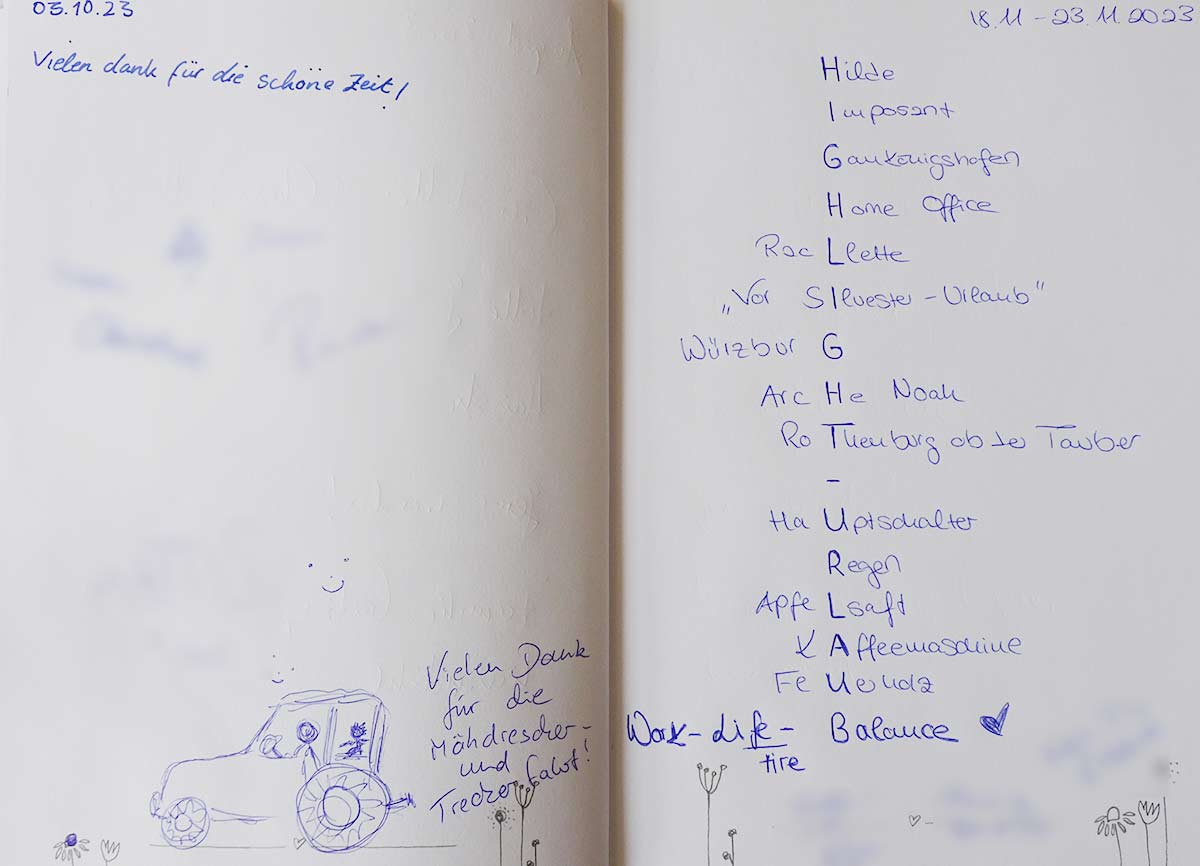 03.10.23
Vielen dank für die schöne Zeit!
Vielen Dank
für die
Mähdrescher-
und
Trecker fahrt!
18.11 - 23.11.2023
Hilde
Imposant
Gaukönigshofen
Home Office
Rac Llette
„Vor SIlvester-Urlaub"
Würzbur G
Arc He Noah
Ro Thenburg ob der Tauber
-
Ha Uptschalter
Regen
Apfe Lsaft
K Affeemaschine
Fe Uerholz
Work-Life- Balance
fire